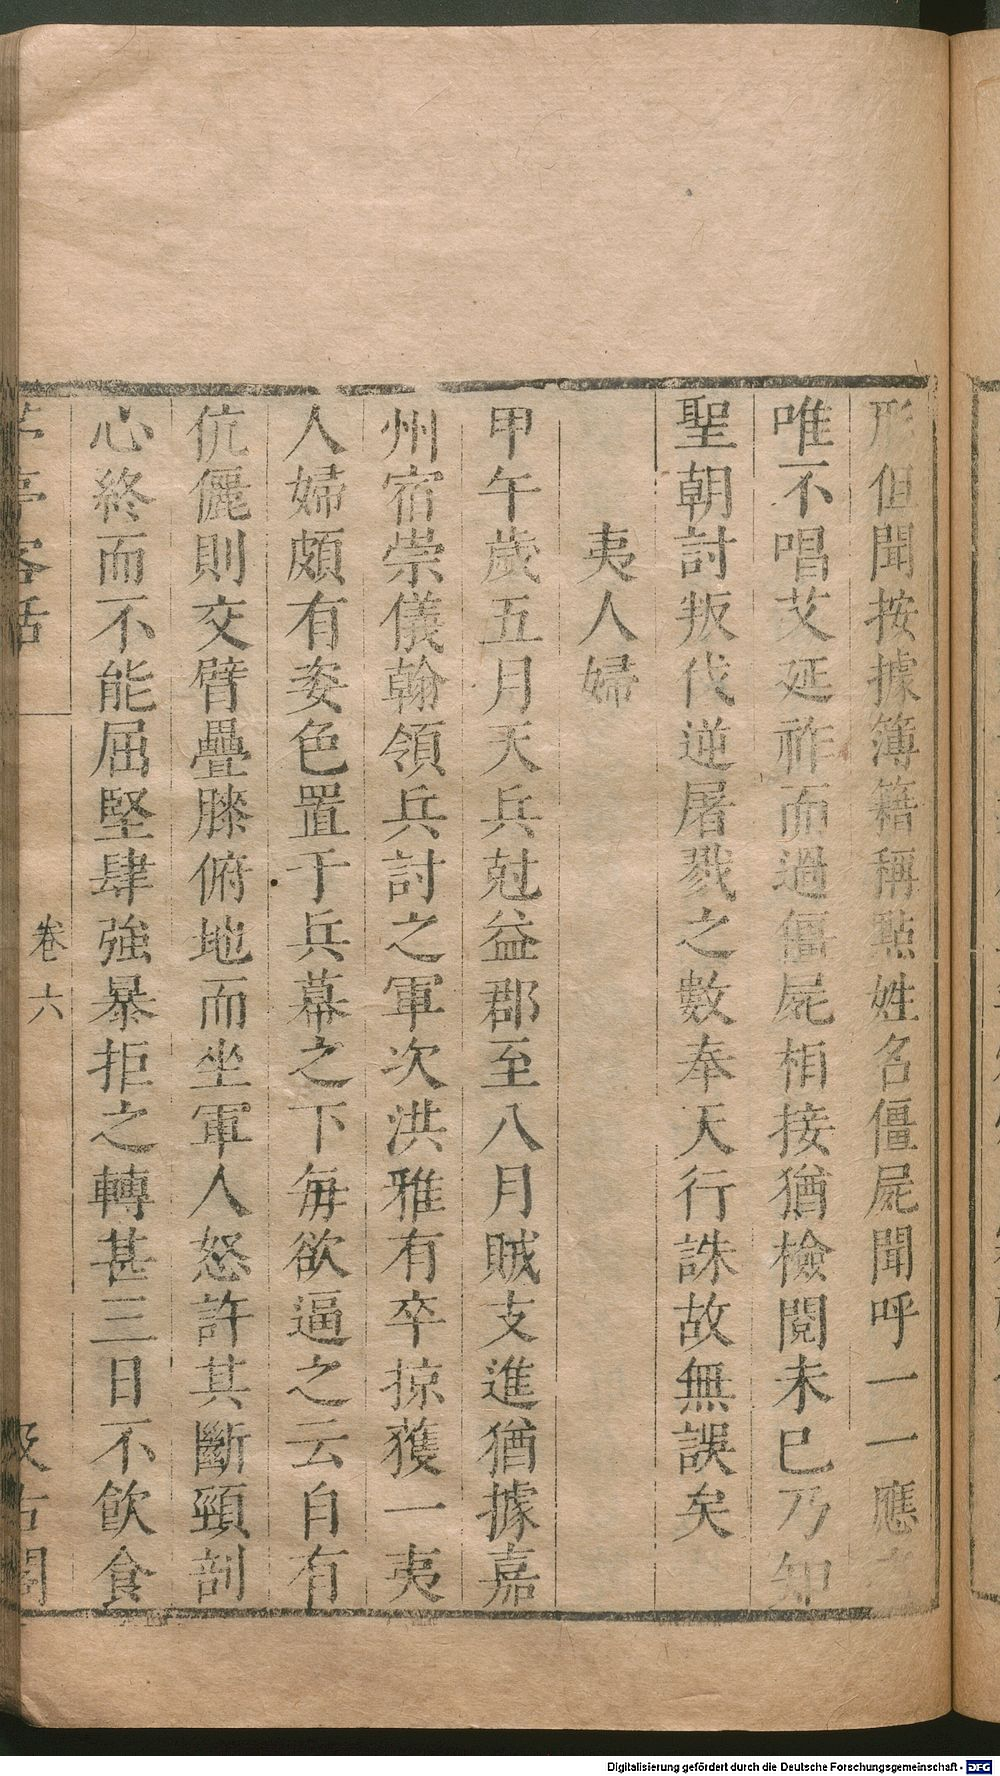 形但聞按據簿籍稱點姓名僵屍聞呼一一應
唯不唱艾延祚而過僵屍相接猶檢閱未已乃知
聖朝討叛伐逆屠戮之數奉天行誅故無誤矣
夷人婦
甲午歲五月天兵尅益郡至八月賊支進猶據嘉
州宿崇儀翰領兵討之軍次洪雅有卒掠獲一夷
人婦頗有姿色置于兵幕之下每欲逼之云自有
伉儷則交臂疊膝俯地而坐軍人怒許其斷頸剖
心終而不能屈堅肆強暴拒之轉甚三日不飲食
茅亭客話
卷六
汲古閣
Digitalisierung gefördert durch die Deutsche Forschungsgemeinschaft - DFG